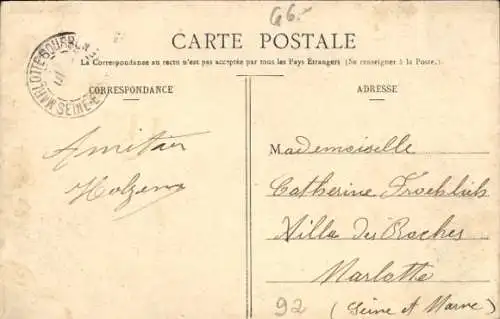 G6.-
CARTE POSTALE
La Correspondance au recto n'est pas acceptée par tous les Pays Étrangers (Se renseigner à la Poste.)
CORRESPONDANCE
ADRESSE
MARLOTTE SEINE-E
Mademoiselle
Catherine Froehlich
Villa des Roches
Marlotte
(Seine et Marne)
92